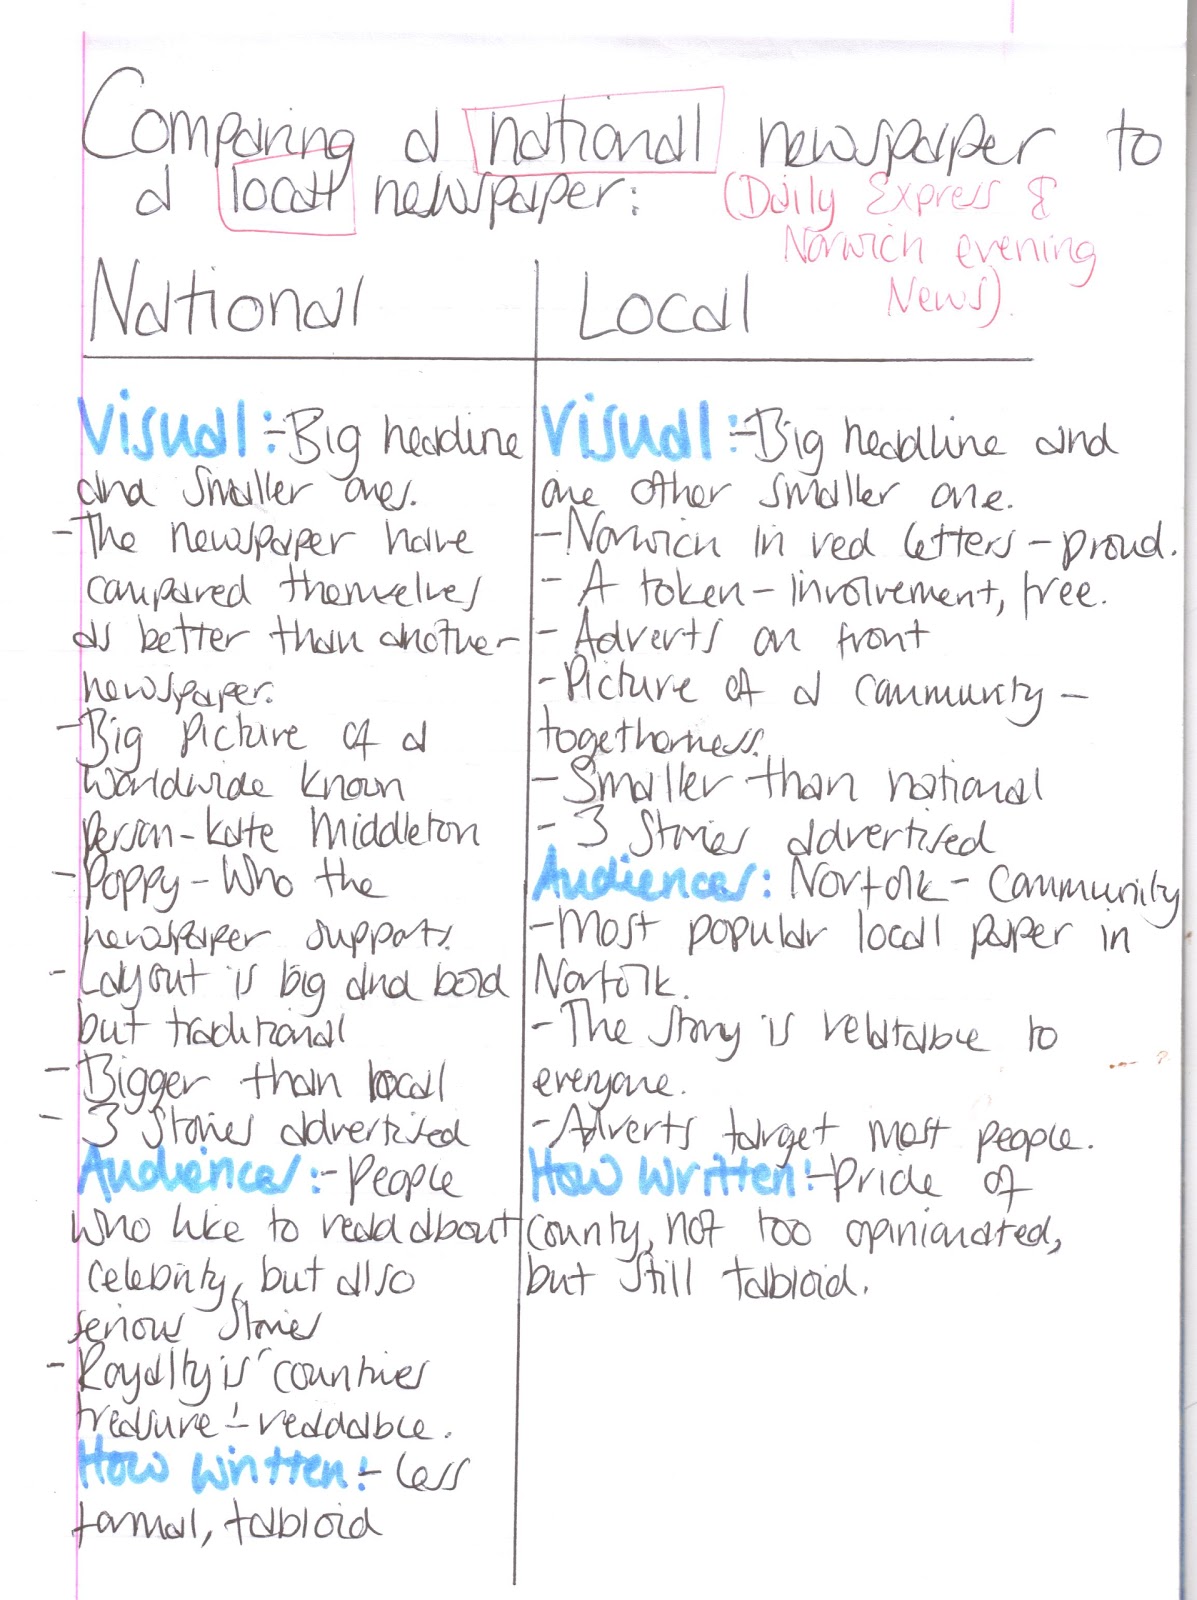 Comparing a national newspaper to
a local newspaper:
(Daily Express &
Norwich evening
News).
National
Visual:- Big headline
and smaller ones.
- The newspaper have
compared themselves
as better than another
newspaper.
- Big picture of a
worldwide known
person - kate Middleton
- Poppy - Who the
newspaper supports.
- Layout is big and bold
but traditional
- Bigger than local
- 3 stories advertised
Audiences:- People
who like to read about
celebrity, but also
serious stories
- Royalty is 'countries
treasure' - readable.
How written:- Less
formal, tabloid
Local
Visual:- Big headline and
one other smaller one.
- Norwich in red letters - proud.
- A token - involvement, free.
- Adverts on front
- Picture of a community -
togetherness.
- Smaller than national
- 3 stories advertised
Audiences: Norfolk - Community
- Most popular local paper in
Norfolk.
- The story is relatable to
everyone.
- Adverts target most people.
How written:- Pride of
county, not too opinionated,
but still tabloid.